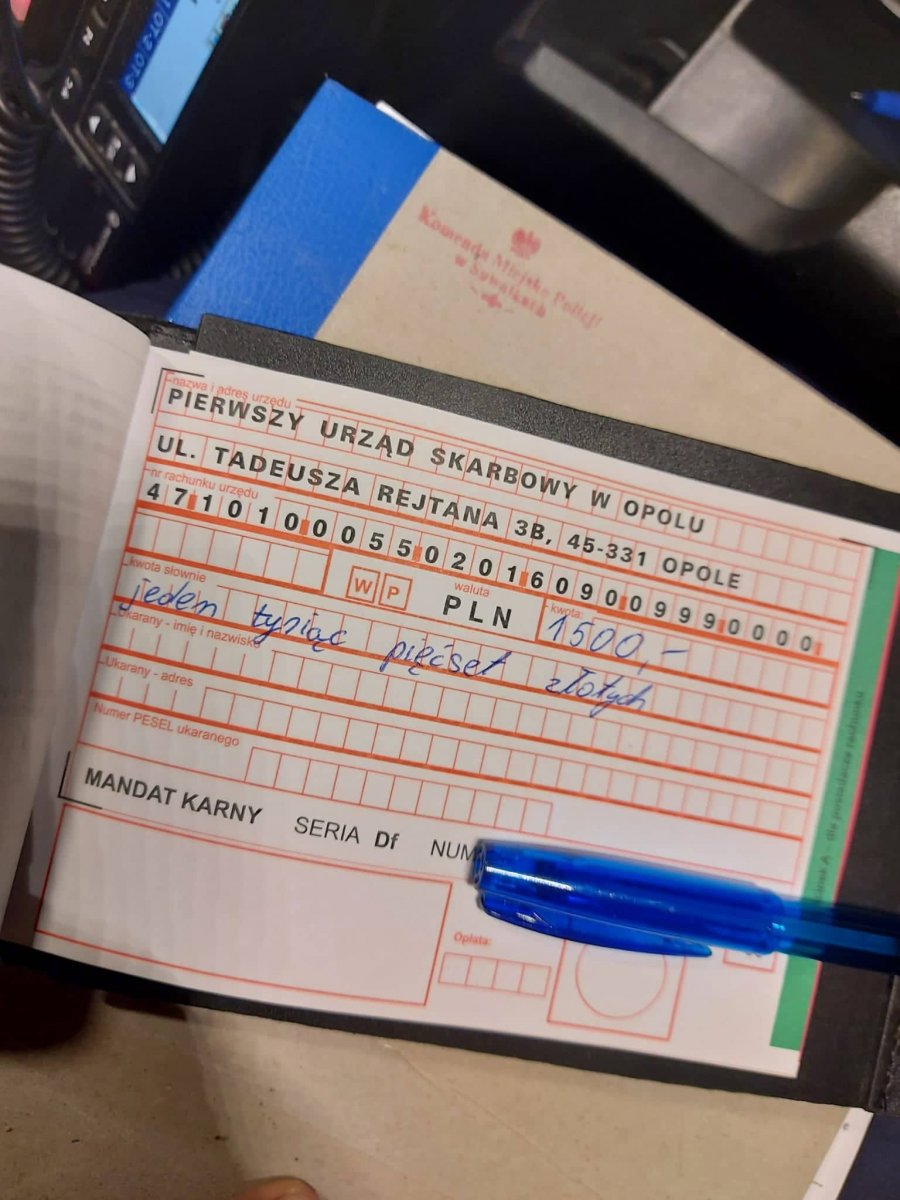 Komenda Miejska Policji
w Suwałkach
nazwa i adres urzędu
PIERWSZY URZĄD SKARBOWY W OPOLU
UL. TADEUSZA REJTANA 3B, 45-331 OPOLE
nr rachunku urzędu
47101000550201609009990000
W P
waluta
PLN
kwota:
1500,-
kwota słownie
jeden tysiąc pięćset złotych
Ukarany - imię i nazwisko
Ukarany - adres
Numer PESEL ukaranego
MANDAT KARNY SERIA Df
Opłata:
- dla posiadacza rachunku